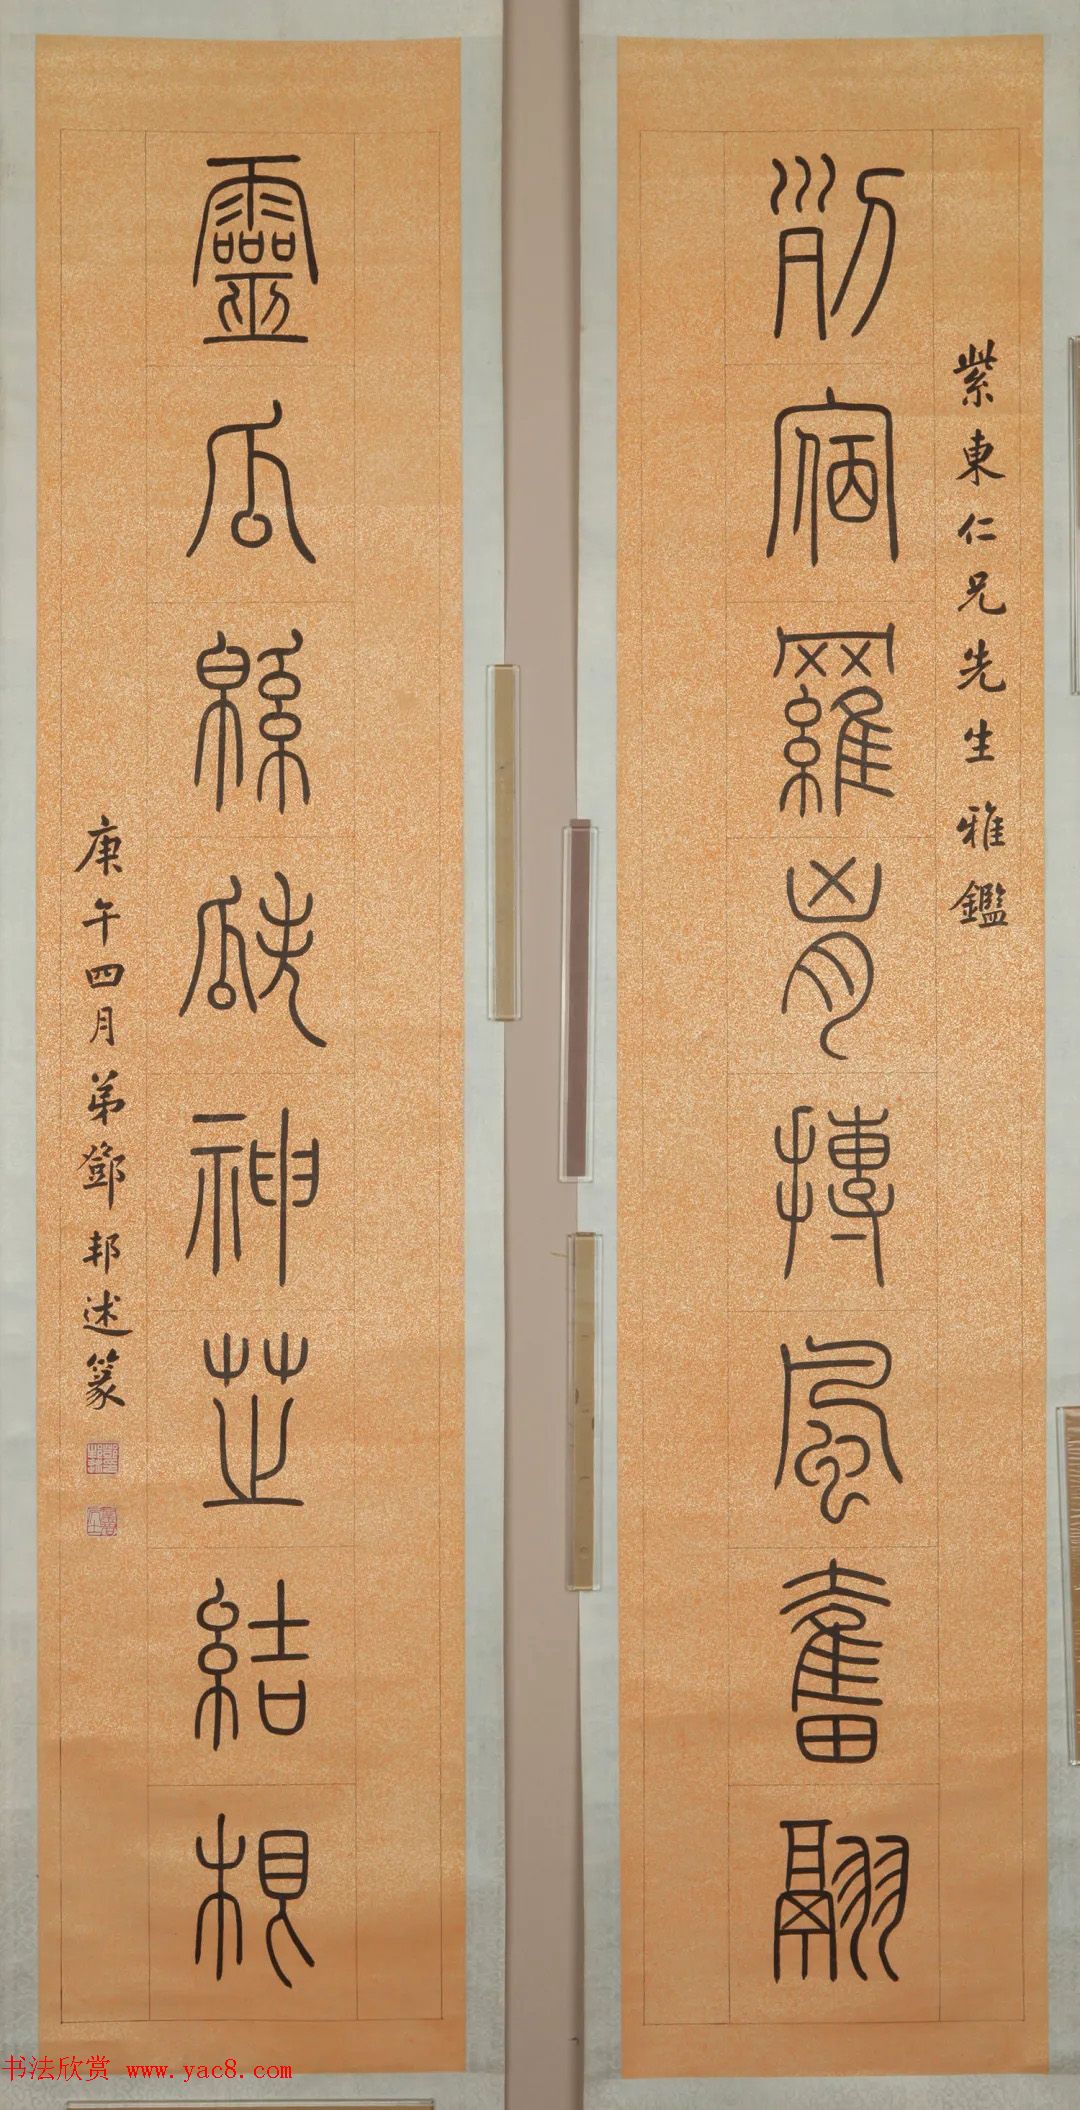 紫東仁兄先生雅鑑
列宿羅胷摶風奮翮
靈瓜緜瓞神芝結根
庚午四月弟鄧邦述篆
书法欣赏 www.yac8.com